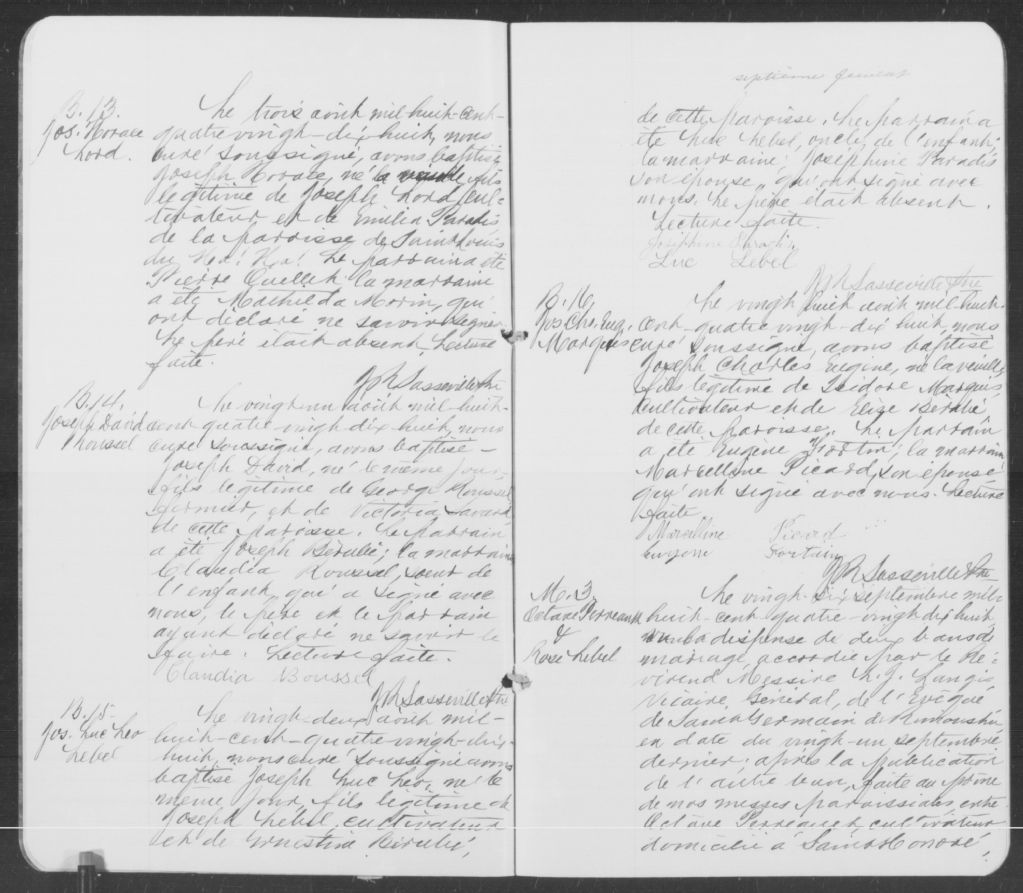 B. 13.
Jos. Horace
Lord.
Le trois août mil huit-cent-
quatre vingt-dix huit, nous
curé soussigné, avons baptisé
Joseph Horace, né la veille fils
légitime de Joseph Lord, cul-
tivateur et de Emilia Paradis
de la paroisse de Saint Louis
du Ha! Ha! Le parrain a été
Pierre Ouellet la marraine
a été Mathilda Morin, qui
ont déclaré ne savoir signer
Le père était absent, Lecture
faite.
Sasseville Ptre
B. 14.
Joseph David
Roussel
Le vingt un août mil huit-
cent quatre vingt dix huit, nous
curé soussigné, avons baptisé
Joseph David, né le même jour
fils légitime de George Roussel
fermier, et de Victoria Savard
de cette paroisse. Le parrain
a été Joseph Bérubé; la marraine
Claudia Roussel, soeur de
l'enfant, qui a signé avec
nous, le père et le parrain
ayant déclaré ne savoir le
faire. Lecture faite.
Claudia Roussel
Sasseville Ptre
B. 15-
Jos. Luc Leo
Lebel
Le vingt-deux août mil-
huit-cent-quatre vingt-dix-
huit, nous curé soussigné avons
baptisé Joseph Luc Leo, né le
même jour, fils légitime de
Joseph Lebel, cultivateur
et de Ernestina Bérubé,
septième feuillet
de cette paroisse. Le parrain a
été Luc Lebel, oncle, de l'enfant;
la marraine; Josephine Paradis
son épouse, qui ont signé avec
nous. Le père était absent.
Lecture faite.
Josephine Paradis
Luc Lebel
Sasseville Ptre
B. 16
Jos Chs. Eug.
Marquis
Le vingt huit août mil huit-
cent-quatre vingt-dix huit, nous
curé soussigné, avons baptisé
Joseph Charles Eugène, né la veille
fils légitime de Isidore Marquis
cultivateur et de Elise Bérubé
de cette paroisse. Le parrain
a été Eugène Fortin; la marraine
Marcelline Picard, son épouse
qui ont signé avec nous. Lecture
faite
Marcelline Picard
Eugene Fortain
Sasseville Ptre
M. 3
Octave Perreault
&
Rose Lebel
Le vingt-six septembre mil
huit-cent quatre-vingt-dix huit,
vu la dispense de deux bans de
mariage accordée par le Ré-
vérend Messire Langis
Vicaire, Général, de l'Evêque
de Saint Germain de Rimouski
en date du vingt-un septembre
dernier; après la publication
de l'autre ban, faite au prône
de nos messes paroissiales entre
Octave Perreault, cultivateur
domicilié à Saint Honoré,